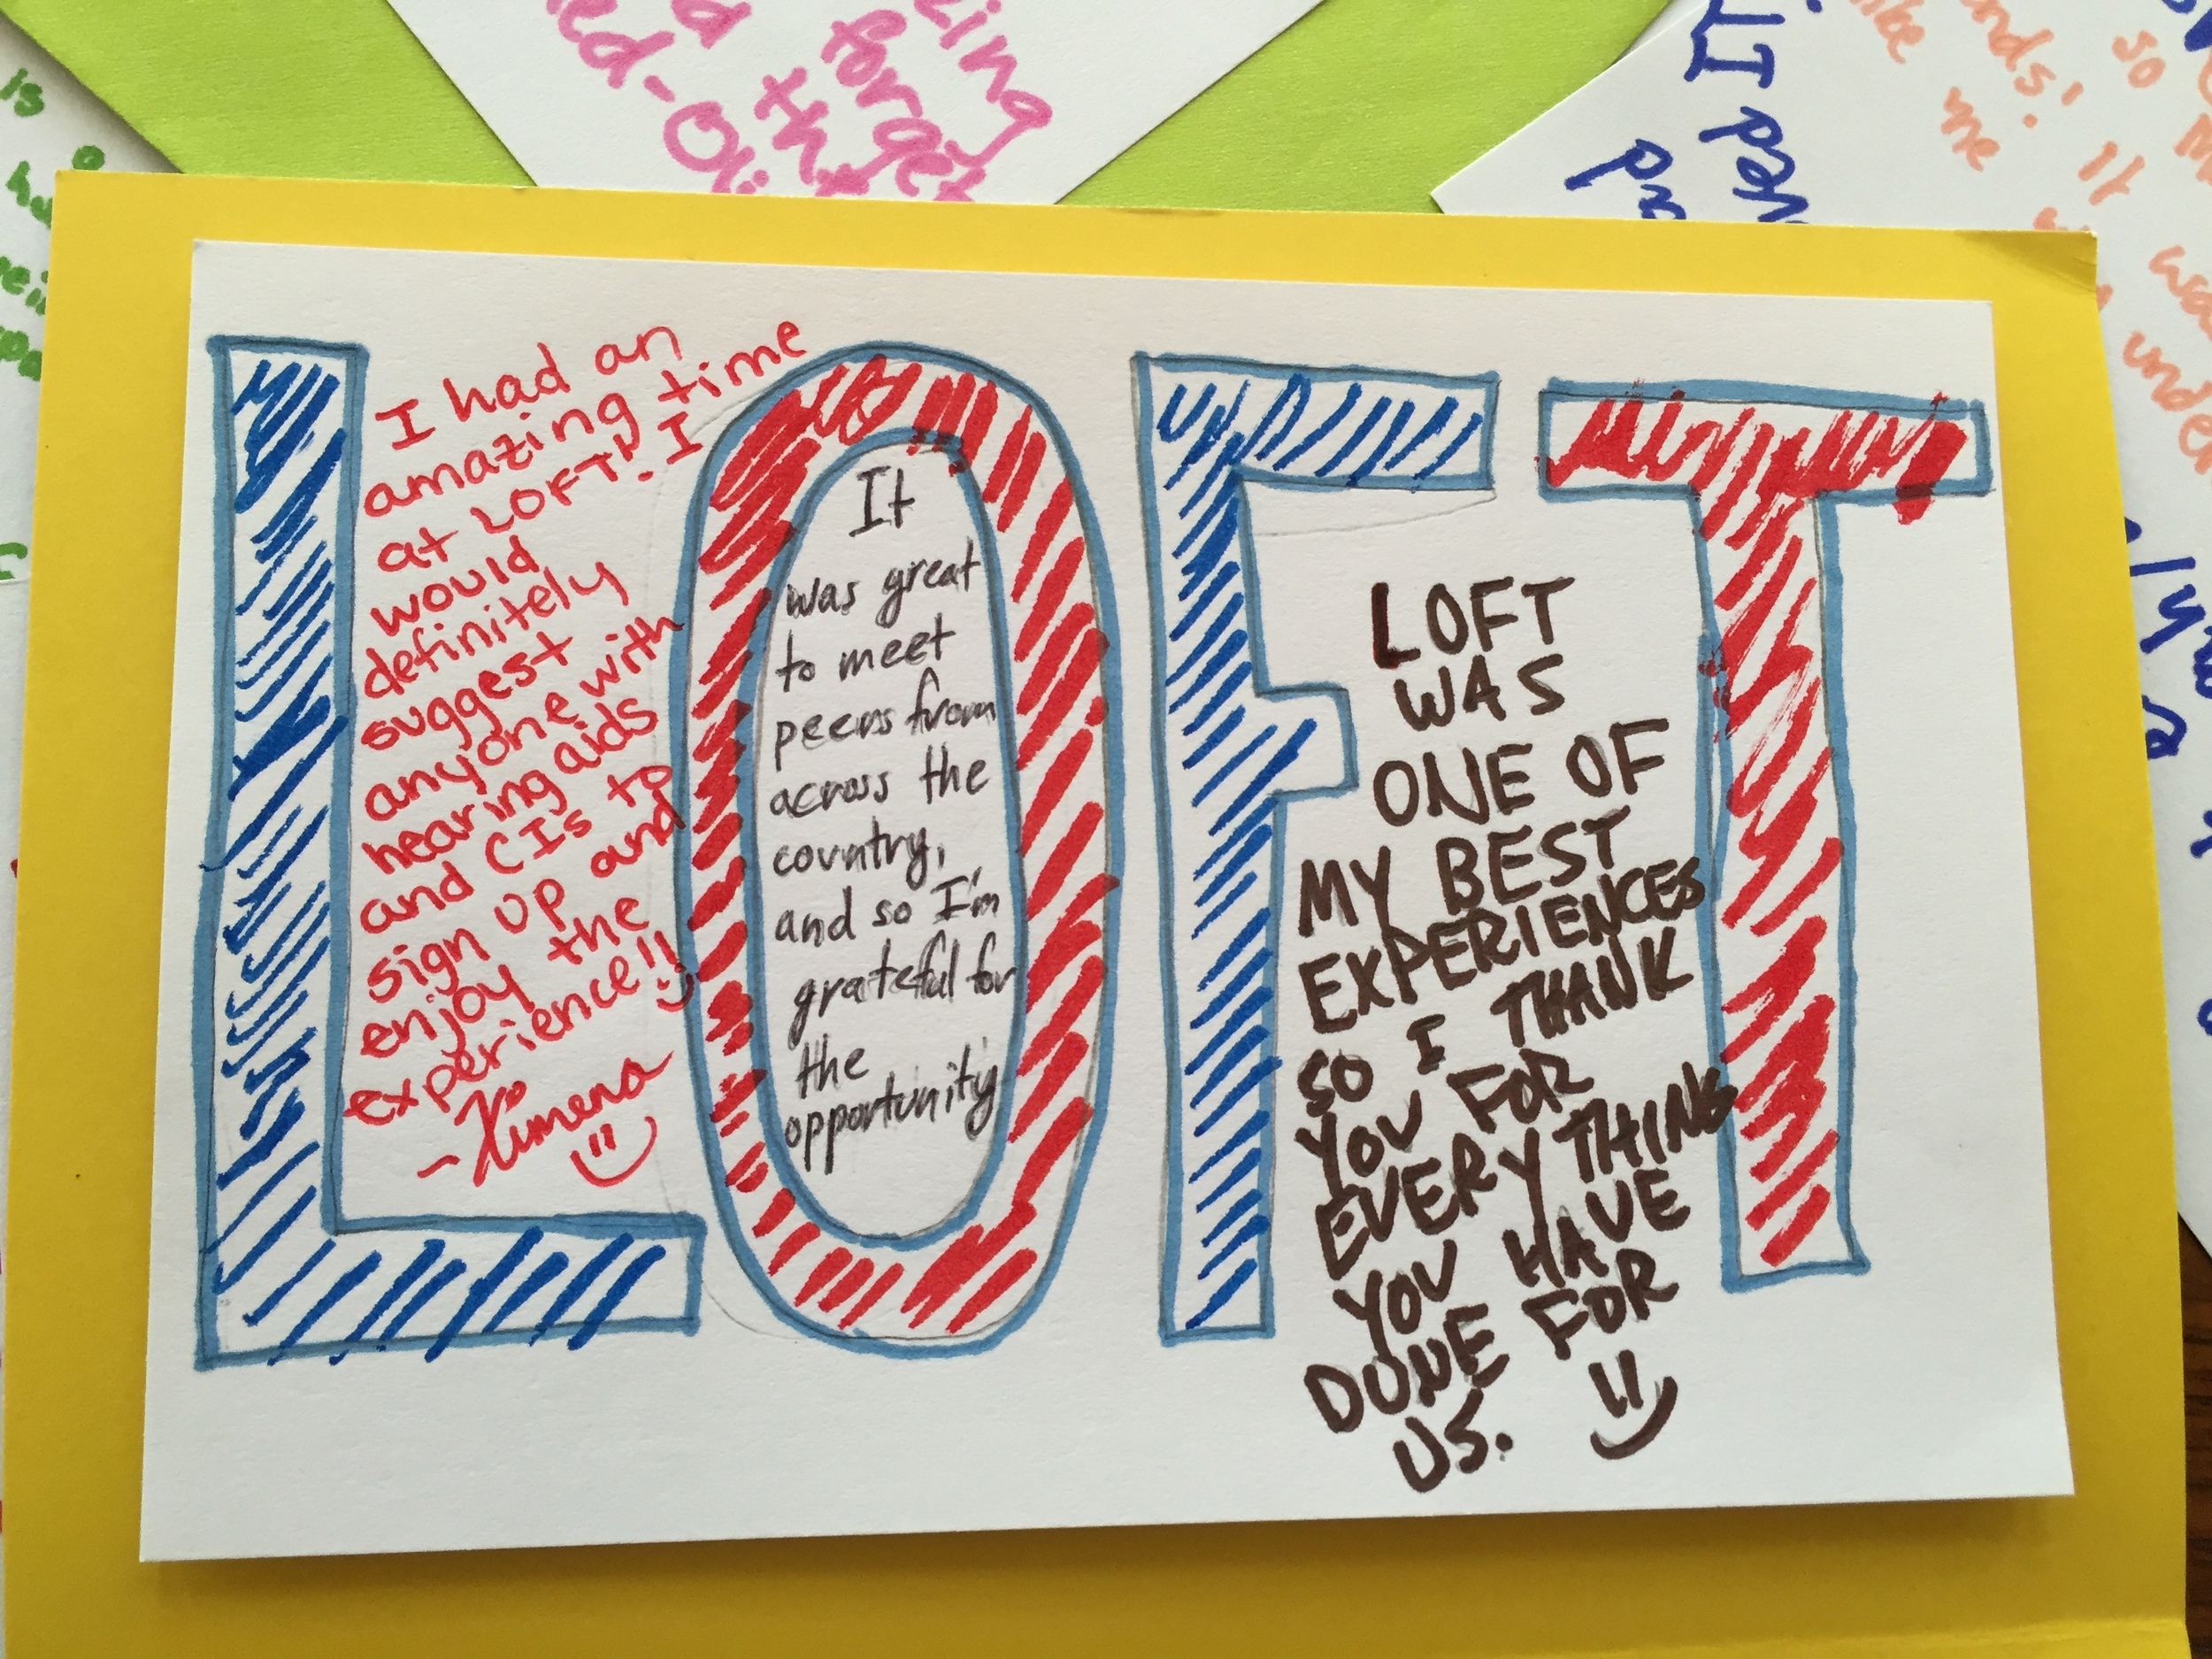 LOFT
I had an
amazing time
at LOFT! I
would
definitely
suggest
anyone with
hearing aids
and CIs to
sign up and
enjoy the
experience!!
-Ximena
It
was great
to meet
peers from
across the
country,
and so I'm
grateful for
the
opportunity
LOFT
WAS
ONE OF
MY BEST
EXPERIENCES
SO I THANK
YOU FOR
EVERYTHING
YOU HAVE
DONE FOR
US.
is
forget
so
like
me
It